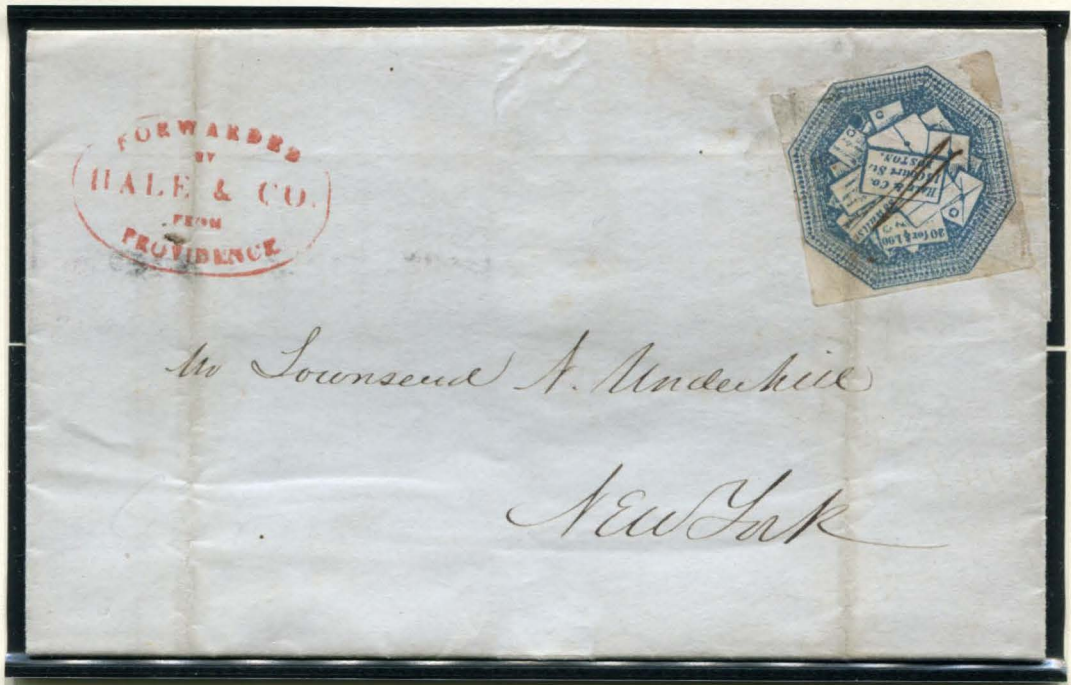 FORWARDED
BY
HALE & CO.
FROM
PROVIDENCE
Hale & Co.
Court St.
BOSTON.
20 for $1.00
Mr Townsend N. Underhill
New York